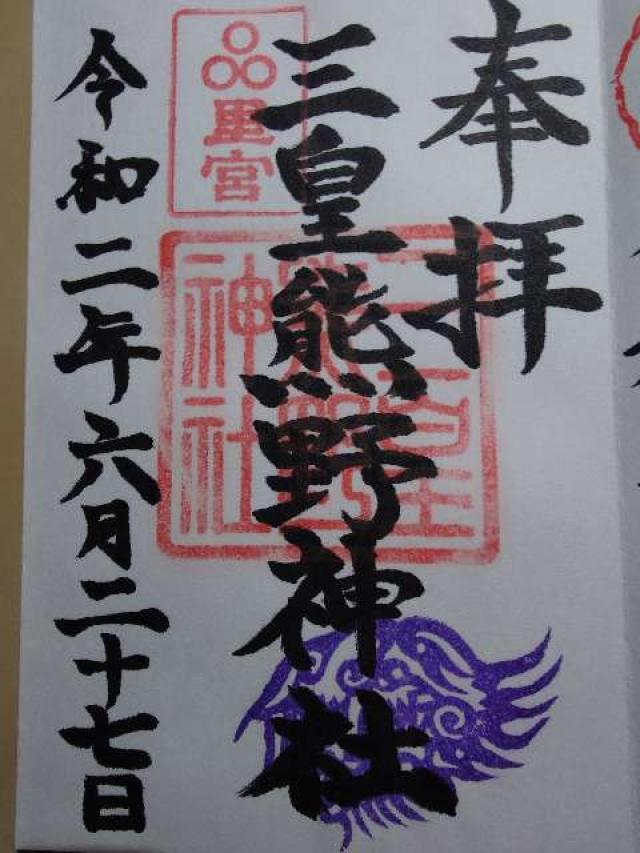 奉拝
三皇熊野神社
里宮
三皇熊野神社
令和二年六月二十七日